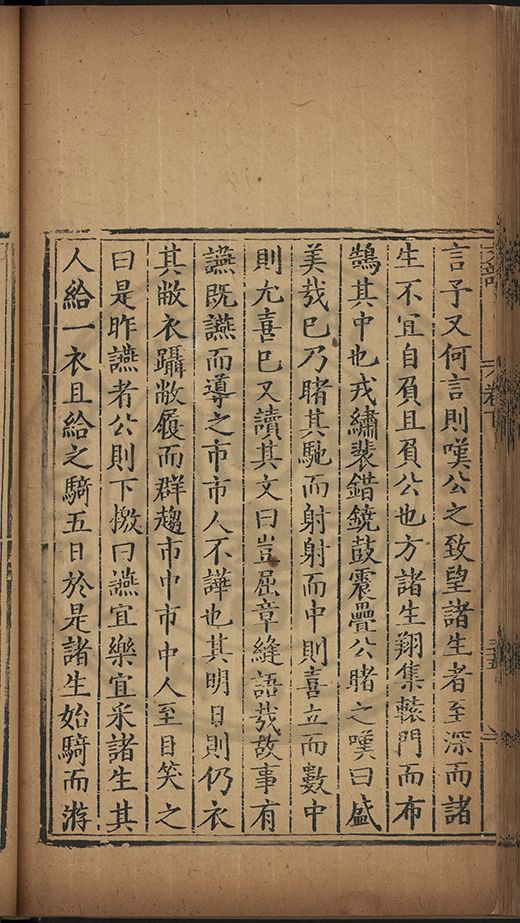 言予又何言則嘆公之致望諸生者至深而諸
生不宜自負且負公也方諸生翔集轅門而布
鵠其中也戎繡裴錯鐃鼓震疊公睹之嘆曰盛
美哉已乃睹其馳而射射而中則喜立而數中
則尤喜已又讀其文曰豈屈章縫語哉故事有
讌既讌而導之市市人不譁也其明日則仍衣
其敝衣躡敝履而群趨市中市中人至目笑之
曰是昨讌者公則下檄曰讌宜樂宜釆諸生其
人給一衣且給之騎五日於是諸生始騎而游
卷下